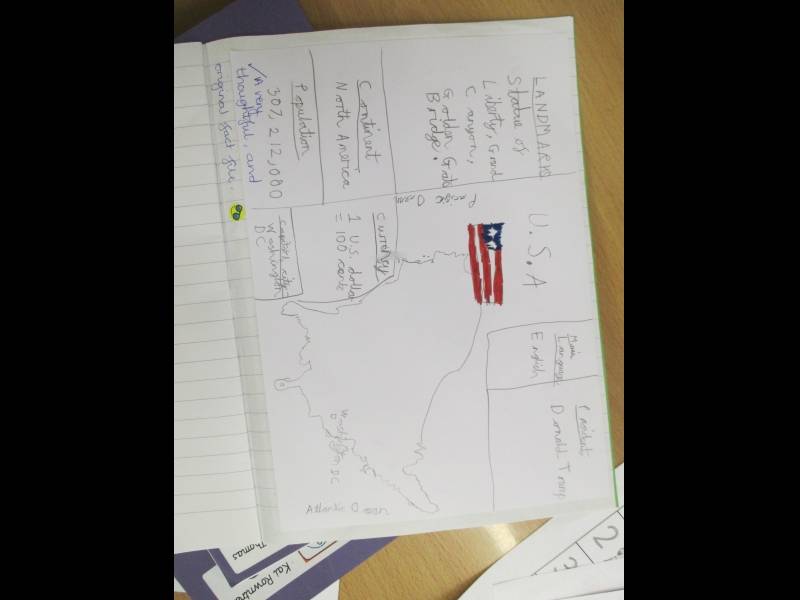 LANDMARKS
Statue of
Liberty, Grand
Canyon,
Golden Gate
Bridge.
U.S.A
Main
Language
English
President
Donald Trump
Continent
North America
Pacific Ocean
Currency
1 U.S. dollar
= 100 cents
Population
307,212,000
Capital city
Washington
DC
Washington DC
Atlantic Ocean
✓ A very
thoughtful, and
original fact file.
Thomas
Kai
2
3